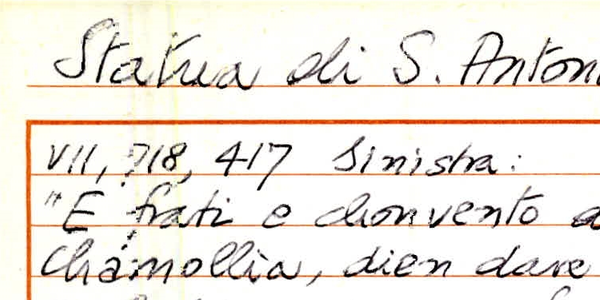 Statua di S. Anton
VII, 718, 417 Sinistra:
"E frati e chonvento a
Chamollia, dien dare